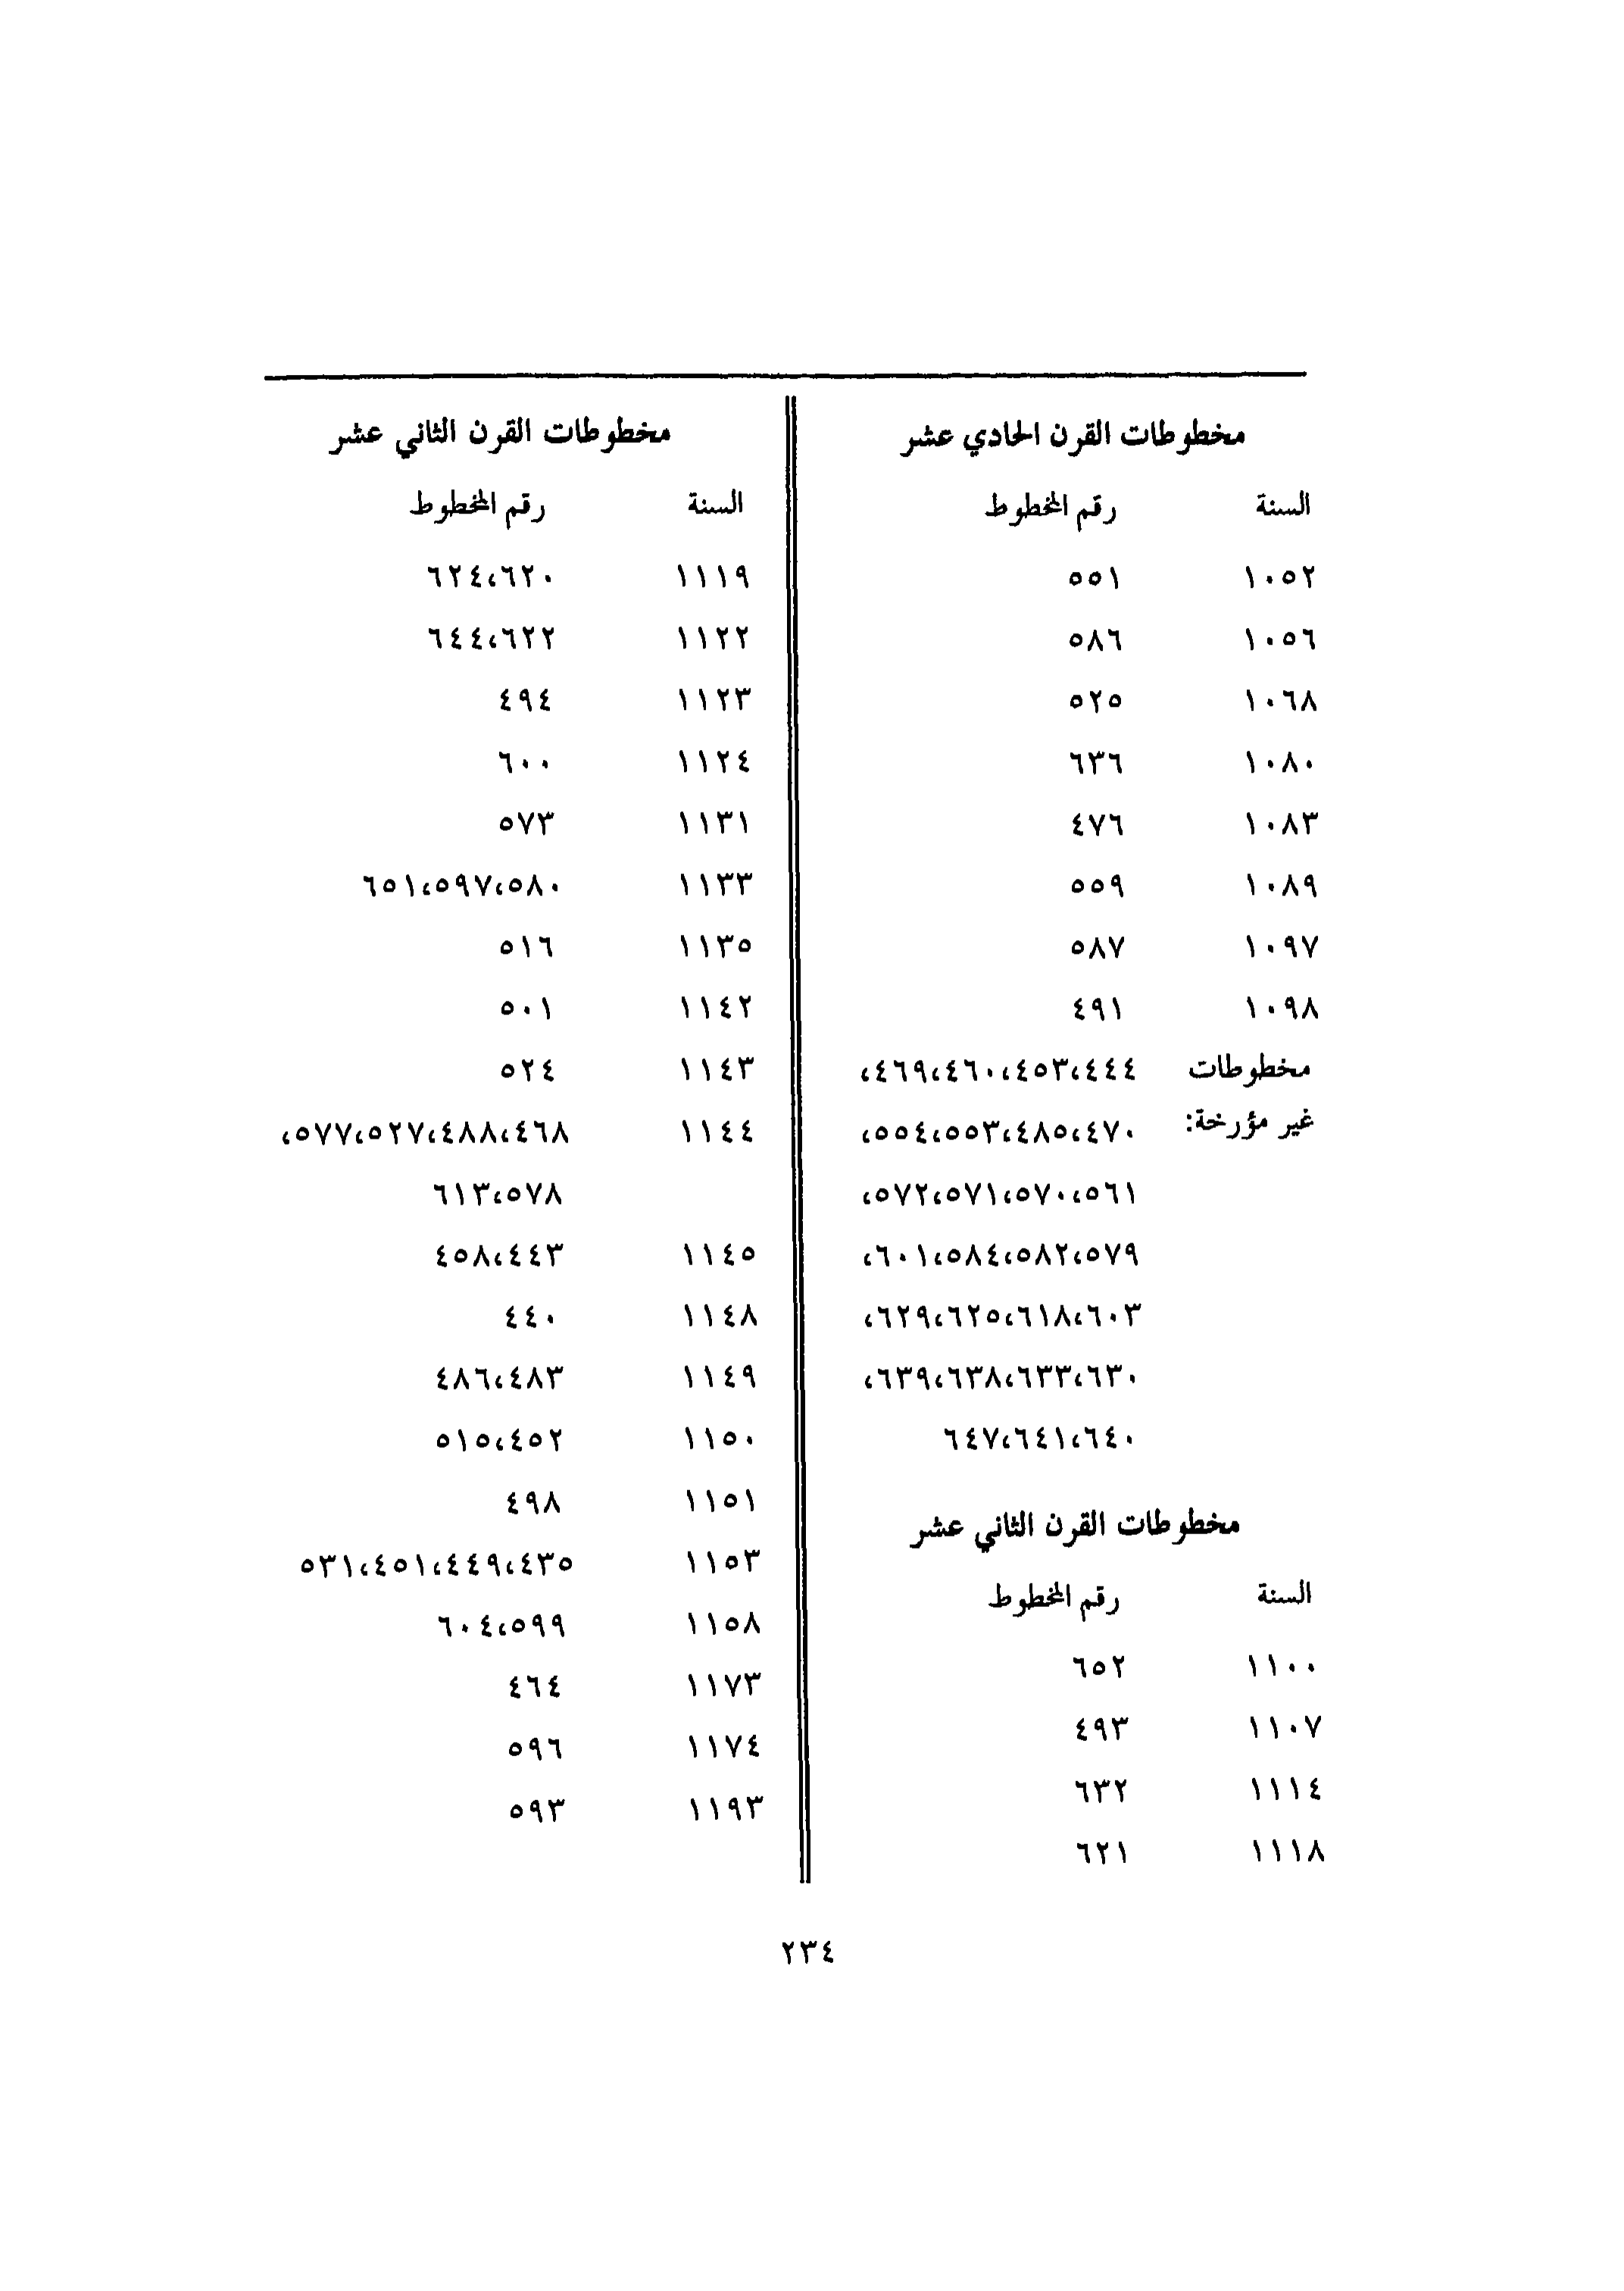 مخطوطات القرن الحادي عشر
السنة رقم المخطوط
١٠٥٢ ٥٥١
١٠٥٦ ٥٨٦
١٠٦٨ ٥٢٥
١٠٨٠ ٦٣٦
١٠٨٣ ٤٧٦
١٠٨٩ ٥٥٩
١٠٩٧ ٥٨٧
١٠٩٨ ٤٩١
مخطوطات ٤٤٤، ٤٥٣، ٤٦٠، ٤٦٩،
غير مؤرخة: ٤٧٠، ٤٨٥، ٥٥٣، ٥٥٤،
٥٦١، ٥٧٠، ٥٧١، ٥٧٢،
٥٧٩، ٥٨٢، ٥٨٤، ٦٠١،
٦٠٣، ٦١٨، ٦٢٥، ٦٢٩،
٦٣٠، ٦٣٣، ٦٣٨، ٦٣٩،
٦٤٠، ٦٤١، ٦٤٧
مخطوطات القرن الثاني عشر
السنة رقم المخطوط
١١٠٠ ٦٥٢
١١٠٧ ٤٩٣
١١١٤ ٦٣٢
١١١٨ ٦٢١
مخطوطات القرن الثاني عشر
السنة رقم المخطوط
١١١٩ ٦٢٠، ٦٢٤
١١٢٢ ٦٢٢، ٦٤٤
١١٢٣ ٤٩٤
١١٢٤ ٦٠٠
١١٣١ ٥٧٣
١١٣٣ ٥٨٠، ٥٩٧، ٦٥١
١١٣٥ ٥١٦
١١٤٢ ٥٠١
١١٤٣ ٥٢٤
١١٤٤ ٤٦٨، ٤٨٨، ٥٢٧، ٥٧٧،
٥٧٨، ٦١٣
١١٤٥ ٤٤٣، ٤٥٨
١١٤٨ ٤٤٠
١١٤٩ ٤٨٣، ٤٨٦
١١٥٠ ٤٥٢، ٥١٥
١١٥١ ٤٩٨
١١٥٣ ٤٣٥، ٤٤٩، ٤٥١، ٥٣١
١١٥٨ ٥٩٩، ٦٠٤
١١٧٣ ٤٦٤
١١٧٤ ٥٩٦
١١٩٣ ٥٩٣
٢٣٤